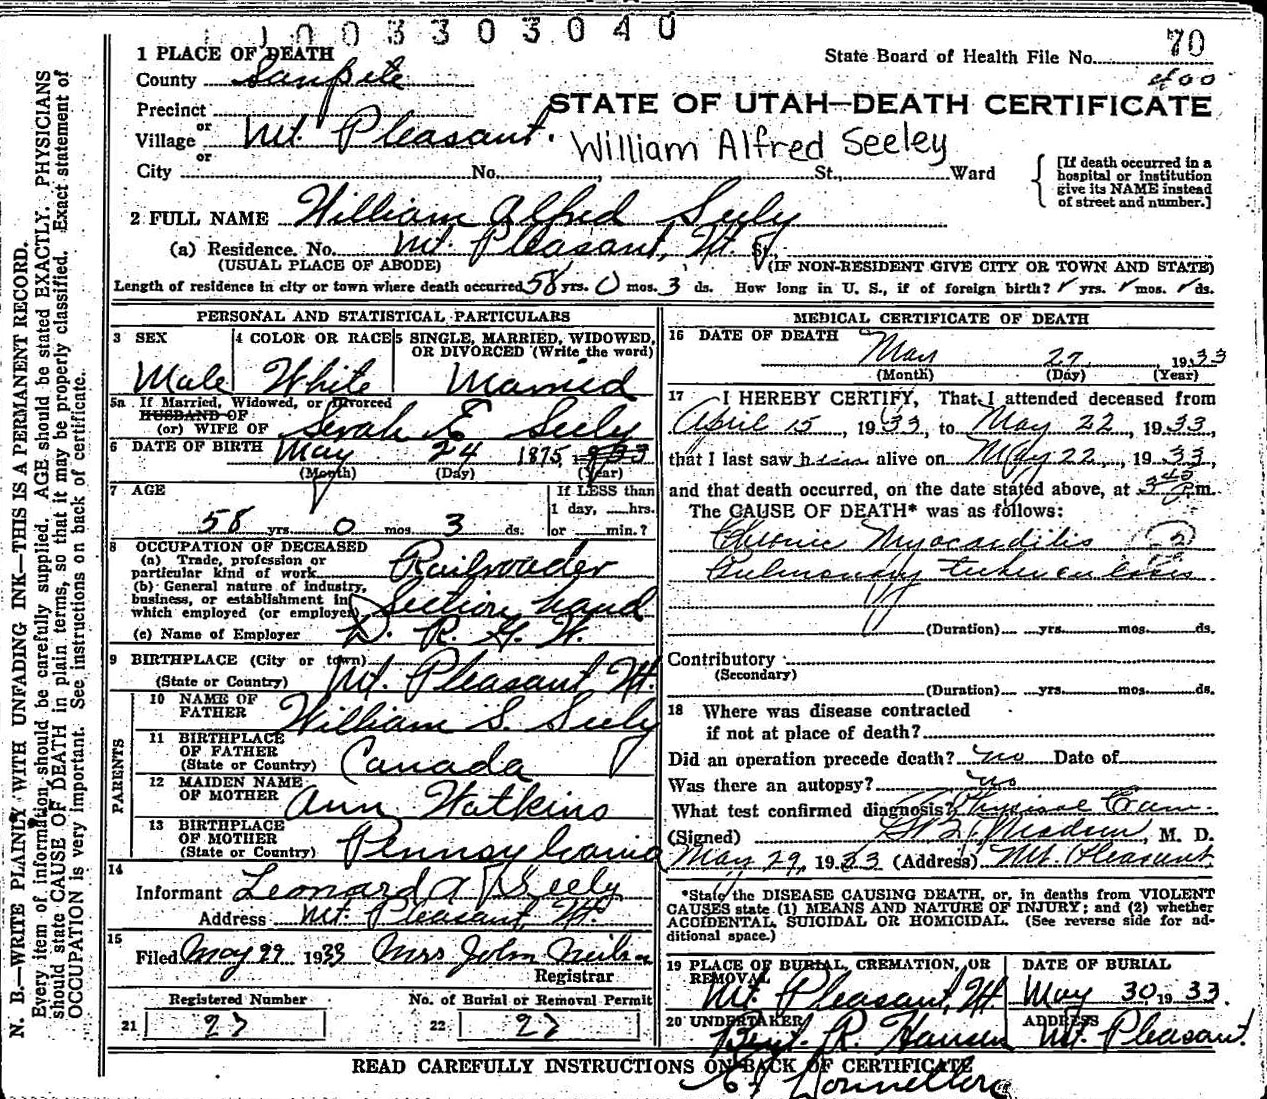 1003303040
1 PLACE OF DEATH
State Board of Health File No. 70
County Sanpete
400
STATE OF UTAH—DEATH CERTIFICATE
Precinct
or
Village Mt. Pleasant.
or
William Alfred Seeley
City No. , St., Ward
[If death occurred in a hospital or institution give its NAME instead of street and number.]
2 FULL NAME William Alfred Seely
(a) Residence. No. Mt. Pleasant, Ut. St.
(USUAL PLACE OF ABODE) (IF NON-RESIDENT GIVE CITY OR TOWN AND STATE)
Length of residence in city or town where death occurred 58 yrs. 0 mos. 3 ds. How long in U. S., if of foreign birth? ✓ yrs. ✓ mos. ✓ ds.
PERSONAL AND STATISTICAL PARTICULARS
3 SEX 4 COLOR OR RACE 5 SINGLE, MARRIED, WIDOWED, OR DIVORCED (Write the word)
Male White Married
5a If Married, Widowed, or Divorced
HUSBAND OF
(or) WIFE OF Serah E Seely
6 DATE OF BIRTH May 24 1875 1933
(Month) (Day) (Year)
7 AGE If LESS than
1 day, hrs.
58 yrs. 0 mos. 3 ds. or min.?
8 OCCUPATION OF DECEASED
(a) Trade, profession or
particular kind of work Railroader
(b) General nature of industry,
business, or establishment in
which employed (or employer) Section hand
(c) Name of Employer D. R. G. W.
9 BIRTHPLACE (City or town)
(State or Country) Mt. Pleasant Ut.
PARENTS
10 NAME OF
FATHER William S. Seely
11 BIRTHPLACE
OF FATHER
(State or Country) Canada
12 MAIDEN NAME
OF MOTHER Ann Watkins
13 BIRTHPLACE
OF MOTHER
(State or Country) Pennsylvania
14
Informant Leonard A Seely
Address Mt. Pleasant, Ut.
15
Filed May 29 1933 Mrs John
Registrar
Registered Number No. of Burial or Removal Permit
21 27 22 27
MEDICAL CERTIFICATE OF DEATH
16 DATE OF DEATH
May 27, 1933
(Month) (Day) (Year)
17 I HEREBY CERTIFY, That I attended deceased from
April 15, 1933, to May 22, 1933,
that I last saw him alive on May 22, 1933,
and that death occurred, on the date stated above, at 3 45 P.m.
The CAUSE OF DEATH* was as follows:
Chronic Myocarditis
Pulmonary tuberculosis
(Duration) yrs. mos. ds.
Contributory
(Secondary)
(Duration) yrs. mos. ds.
18 Where was disease contracted
if not at place of death?
Did an operation precede death? no Date of
Was there an autopsy? no
What test confirmed diagnosis? Physical Exam.
(Signed) Madsen, M. D.
May 29, 1933 (Address) Mt. Pleasant.
*State the DISEASE CAUSING DEATH, or, in deaths from VIOLENT
CAUSES state (1) MEANS AND NATURE OF INJURY; and (2) whether
ACCIDENTAL, SUICIDAL OR HOMICIDAL. (See reverse side for ad-
ditional space.)
19 PLACE OF BURIAL, CREMATION, OR REMOVAL DATE OF BURIAL
Mt. Pleasant, Ut May 30, 1933.
20 UNDERTAKER ADDRESS
R. Hansen Mt. Pleasant.
READ CAREFULLY INSTRUCTIONS ON BACK OF CERTIFICATE
N. B.—WRITE PLAINLY WITH UNFADING INK—THIS IS A PERMANENT RECORD.
Every item of information should be carefully supplied. AGE should be stated EXACTLY. PHYSICIANS
should state CAUSE OF DEATH in plain terms, so that it may be properly classified. Exact statement of
OCCUPATION is very important. See instructions on back of certificate.